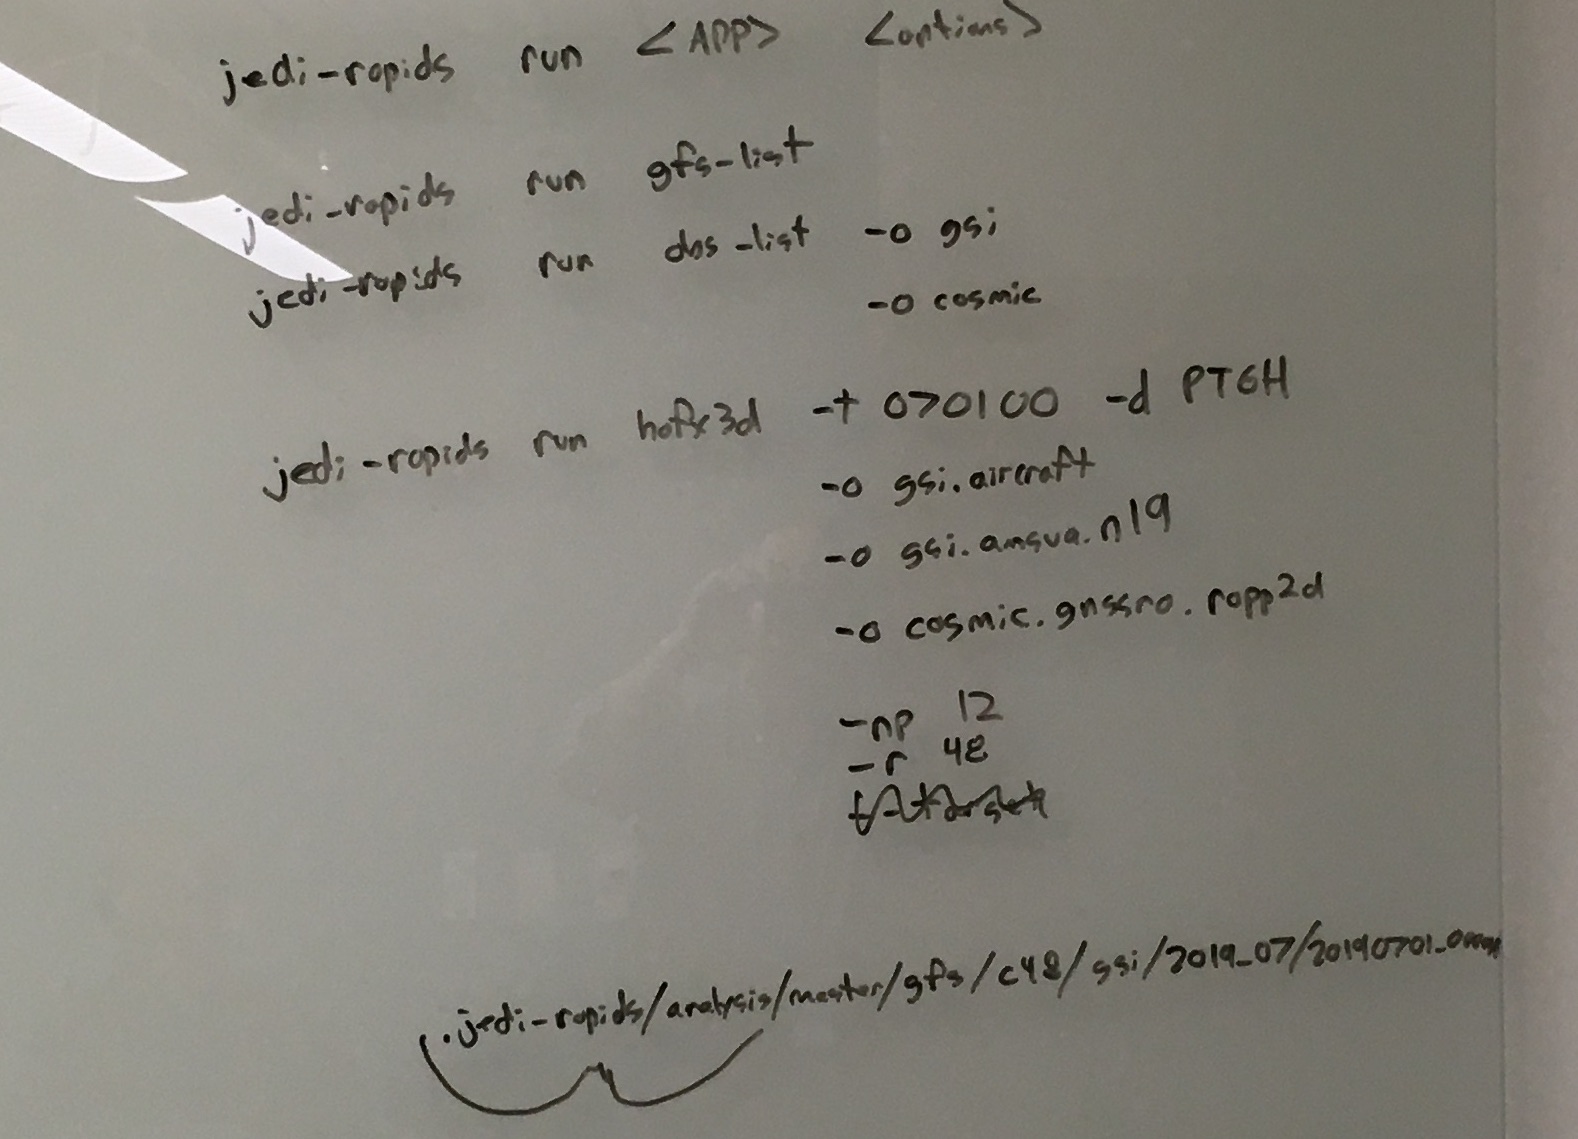 jedi-rapids run <APP> <options>
jedi-rapids run gfs-list
jedi-rapids run obs-list -o gsi
-o cosmic
jedi-rapids run hofx3d -t 070100 -d PT6H
-o gsi.aircraft
-o gsi.amsua.n19
-o cosmic.gnssro.ropp2d
-np 12
-r 48
.jedi-rapids/analysis/master/gfs/c48/gsi/2019_07/20190701_